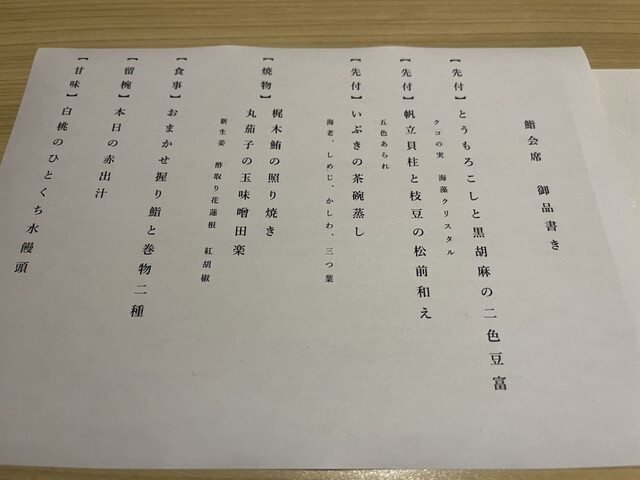 鮨会席　御品書き
【先付】とうもろこしと黒胡麻の二色豆富
クコの実　海藻クリスタル
【先付】帆立貝柱と枝豆の松前和え
五色あられ
【先付】いぶきの茶碗蒸し
海老、しめじ、かしわ、三つ葉
【焼物】梶木鮪の照り焼き
丸茄子の玉味噌田楽
新生姜　酢取り花蓮根　紅胡椒
【食事】おまかせ握り鮨と巻物二種
【留椀】本日の赤出汁
【甘味】白桃のひとくち水饅頭